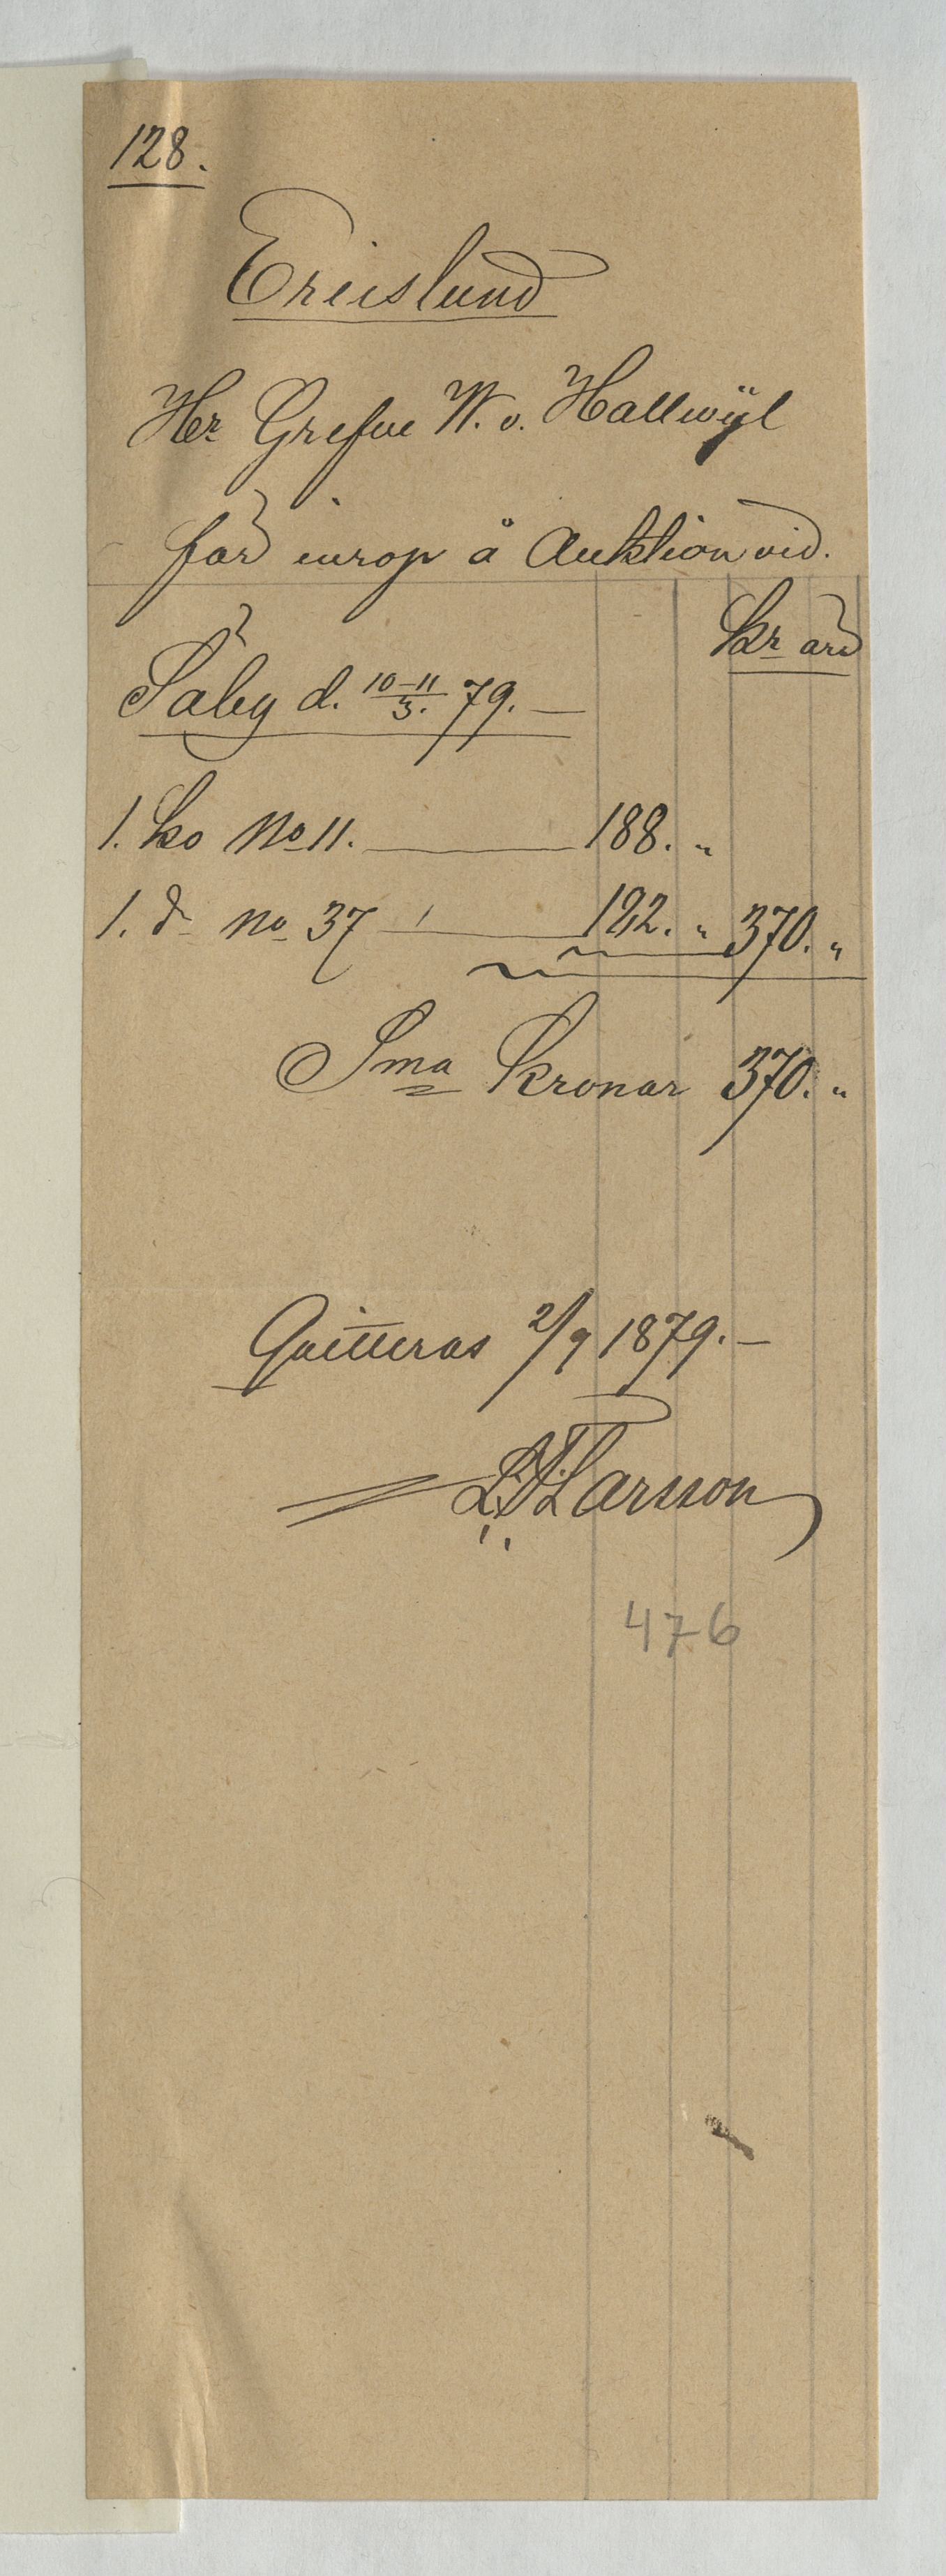 128.
Ericslund
Hr Grefve W. v. Hallwÿl
för inrop å Auktion vid.
Kr öre
Säby d. 10-11/3. 79. —
1. Ko No 11. — 188. "
1. do No 37 — 182. " 370. "
Sma Kronor 370. "
Quitteras 2/9 1879. —
Larsson
476